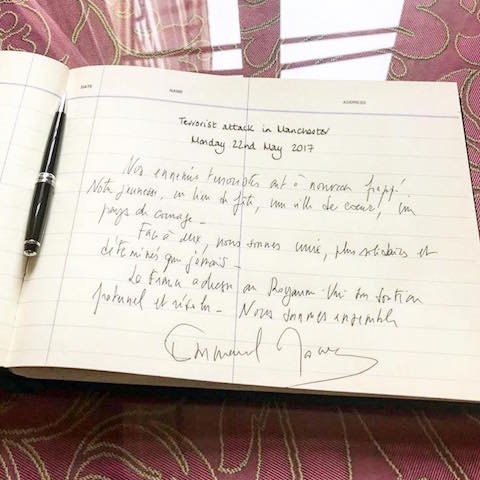 DATE NAME ADDRESS
Terrorist attack in Manchester
Monday 22nd May 2017
Nos ennemis terroristes ont à nouveau frappé
Notre jeunesse, un lieu de fête, une ville de cœur, un
pays du courage -
Face à eux, nous sommes unis, plus solidaires et
déterminés que jamais -
La France adresse au Royaume-Uni son soutien
fraternel et résolu - Nous sommes ensemble
Emmanuel Macron